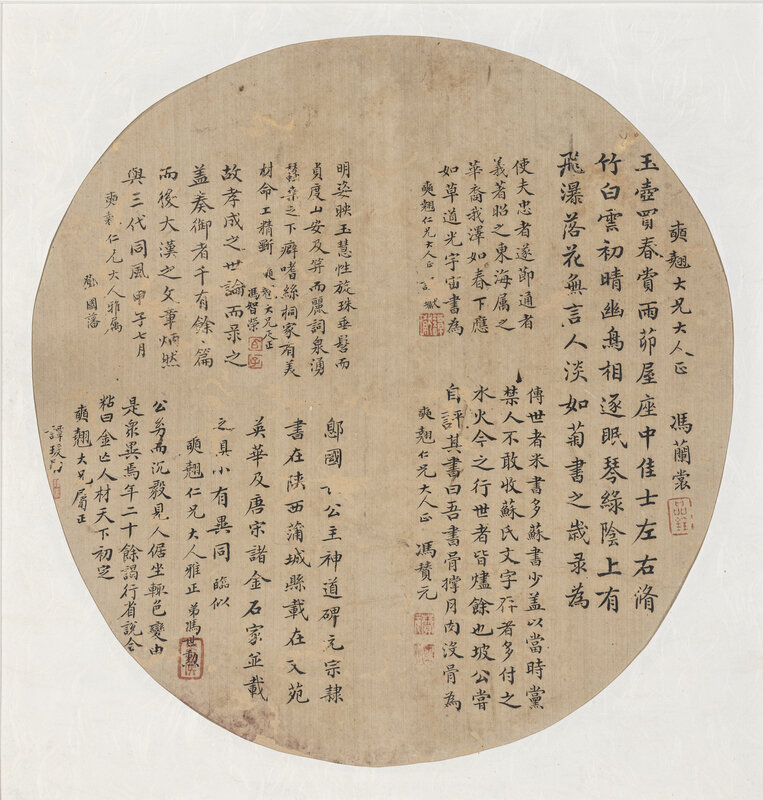 玉壺買春賞雨茆屋座中佳士左右脩
竹白雲初晴幽鳥相逐眠琴綠陰上有
飛瀑落花無言人淡如菊書之歲录為
奭翹大兄大人正 馮蘭裳
使夫忠者遂節通者
義著昭之東海属之
華裔我澤如春下應
如草道光宇宙書為
奭翹仁兄大人正
傳世者米書多蘇書少盖以當時黨
禁人不敢收蘇氏文字存者多付之
水火今之行世者皆燼餘也坡公嘗
自評其書曰吾書骨撑肉肉没骨為
奭翹仁兄大人正 馮贊元
明姿映玉慧性旋珠垂髫而
貞度山安及笄而麗詞泉湧
之下癖嗜絲桐家有美
材命工精斲 奭翹大兄大人正
馮智榮
故孝成之世論而录之
盖奏御者千有餘篇
而後大漢之文章炳然
與三代同風 甲子七月
奭翹仁兄大人雅属
國藩
鄎國長公主神道碑元宗隸
書在陝西蒲城縣載在文苑
英華及唐宋諸金石家並載
之具小有異同 臨似
奭翹仁兄大人雅正 弟馮世勲
公劣而沉毅見人倨坐輒色變由
是衆異焉年二十餘謁行省説令
粘曰金亡人材天下初定
奭翹大兄屬正
譚